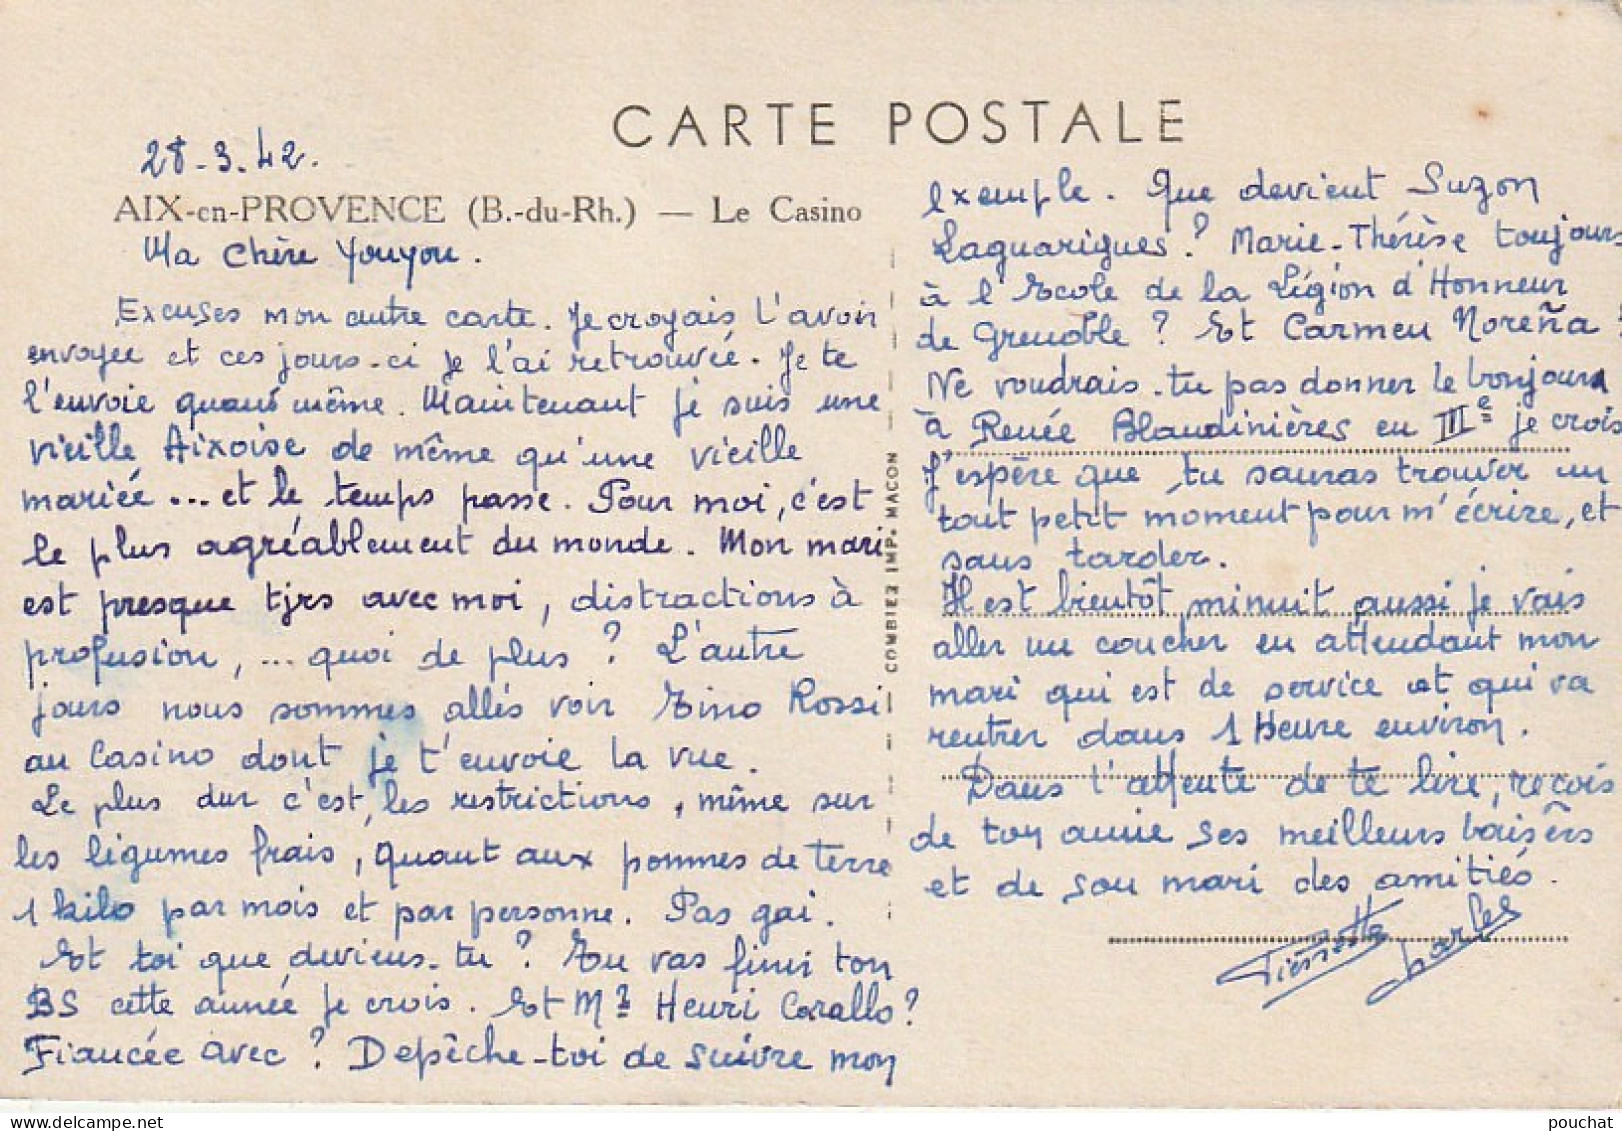 CARTE POSTALE
28-3.42.
AIX-en-PROVENCE (B.-du-Rh.) — Le Casino
Ma Chère Youyou.
Excuses mon autre carte. Je croyais l'avoir
envoyée et ces jours-ci je l'ai retrouvée. Je te
l'envoie quand même. Maintenant je suis une
vieille Aixoise de même qu'une vieille
mariée ... et le temps passe. Pour moi, c'est
le plus agréablement du monde. Mon mari
est presque tjrs avec moi, distractions à
profusion, ... quoi de plus ? L'autre
jours nous sommes allés voir Tino Rossi
au Casino dont je t'envoie la vue.
Le plus dur c'est, les restrictions, même sur
les légumes frais, quant aux pommes de terre
1 kilo par mois et par personne. Pas gai.
Et toi que deviens-tu ? Tu vas finir ton
BS cette année je crois. Et Mr Henri Corallo ?
Fiancée avec ? Dépêche-toi de suivre mon
COMBIER IMP. MACON
exemple. Que devient Suzon
Laguarigues ? Marie-Thérèse toujours
à l'Ecole de la Légion d'Honneur
de Grenoble ? Et Carmen Noreña ?
Ne voudrais-tu pas donner le bonjour
à Renée Blandinières en IIIe je crois
J'espère que tu sauras trouver un
tout petit moment pour m'écrire, et
sans tarder.
Il est bientôt minuit aussi je vais
aller me coucher en attendant mon
mari qui est de service et qui va
rentrer dans 1 Heure environ.
Dans l'attente de te lire, reçois
de ton amie ses meilleurs baisers
et de son mari des amitiés.
Pierrette Charles
pouchat